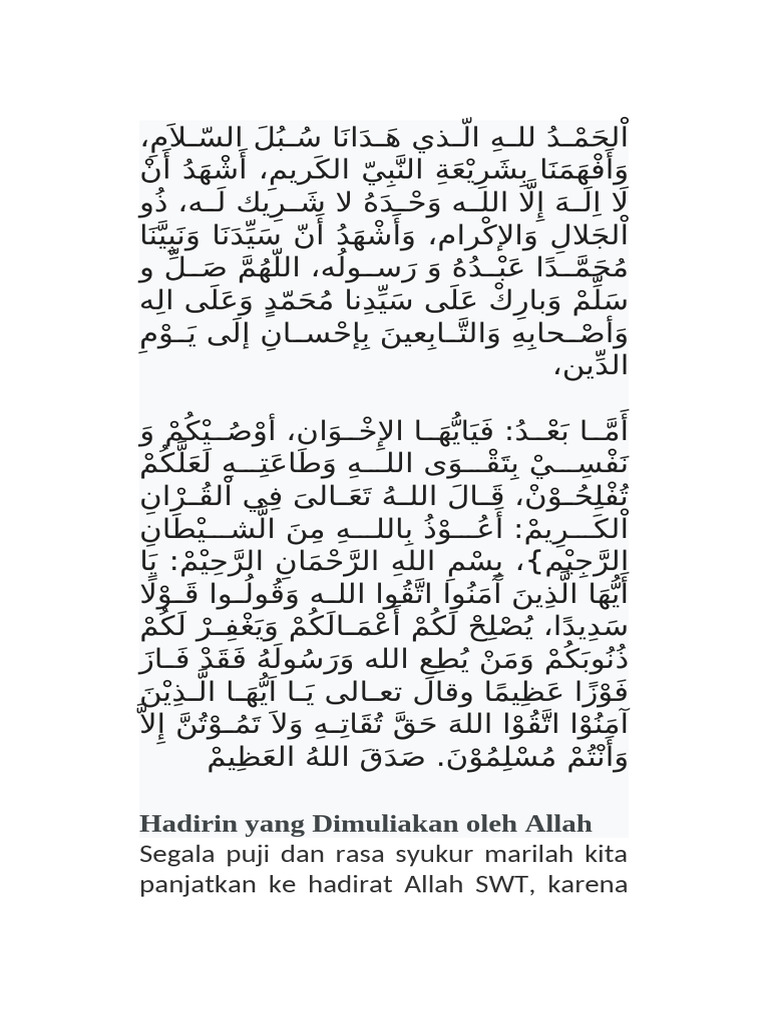 اْلحَمْـدُ للـهِ الَّـذي هَـدَانَا سُـبُلَ السَّـلاَمِ،
وَأَفْهَمَنَا بِشَرِيْعَةِ النَّبِيّ الكَريمِ، أَشْهَدُ أَنْ
لَا اِلَـهَ إِلَّا اللـه وَحْـدَهُ لا شَـرِيك لَـه، ذُو
اْلجَلالِ وَالإكْرام، وَأَشْهَدُ أَنّ سَيِّدَنَا وَنَبِيَّنَا
مُحَمَّـدًا عَبْـدُهُ وَ رَسـولُه، اللّهُمَّ صَـلِّ و
سَلِّمْ وَبارِكْ عَلَى سَيِّدِنا مُحَمّدٍ وَعَلَى الِه
وَأصْـحابِهِ وَالتَّـابِعينَ بِإحْسـانِ إلَى يَـوْمِ
الدِّين،
أَمَّـا بَعْـدُ: فَيَايُّهَـا الإِخْـوَان، أوْصُـيْكُمْ وَ
نَفْسِـيْ بِتَقْـوَى اللـهِ وَطَاعَتِـهِ لَعَلَّكُمْ
تُفْلِحُـوْنْ، قَـالَ اللـهُ تَعَـالىَ فِي اْلقُـرْانِ
اْلكَـرِيمْ: أَعُـوْذُ بِاللـهِ مِنَ الَّشـيْطَانِ
الرَّجِيْم}، بِسْمِ اللهِ الرَّحْمَانِ الرَّحِيْمْ: يَا
أَيُّهَا الَّذِينَ آَمَنُوا اتَّقُوا اللـه وَقُولُـوا قَـوْلًا
سَدِيدًا، يُصْلِحْ لَكُمْ أَعْمَـالَكُمْ وَيَغْفِـرْ لَكُمْ
ذُنُوبَكُمْ وَمَنْ يُطِعِ الله وَرَسُولَهُ فَقَدْ فَـازَ
فَوْزًا عَظِيمًا وقال تعـالى يَـا اَيُّهَـا الَّـذِيْنَ
آمَنُوْا اتَّقُوْا اللهَ حَقَّ تُقَاتِـهِ وَلاَ تَمُـوْتُنَّ إِلاَّ
وَأَنْتُمْ مُسْلِمُوْنَ. صَدَقَ اللهُ العَظِيمْ
Hadirin yang Dimuliakan oleh Allah
Segala puji dan rasa syukur marilah kita
panjatkan ke hadirat Allah SWT, karena